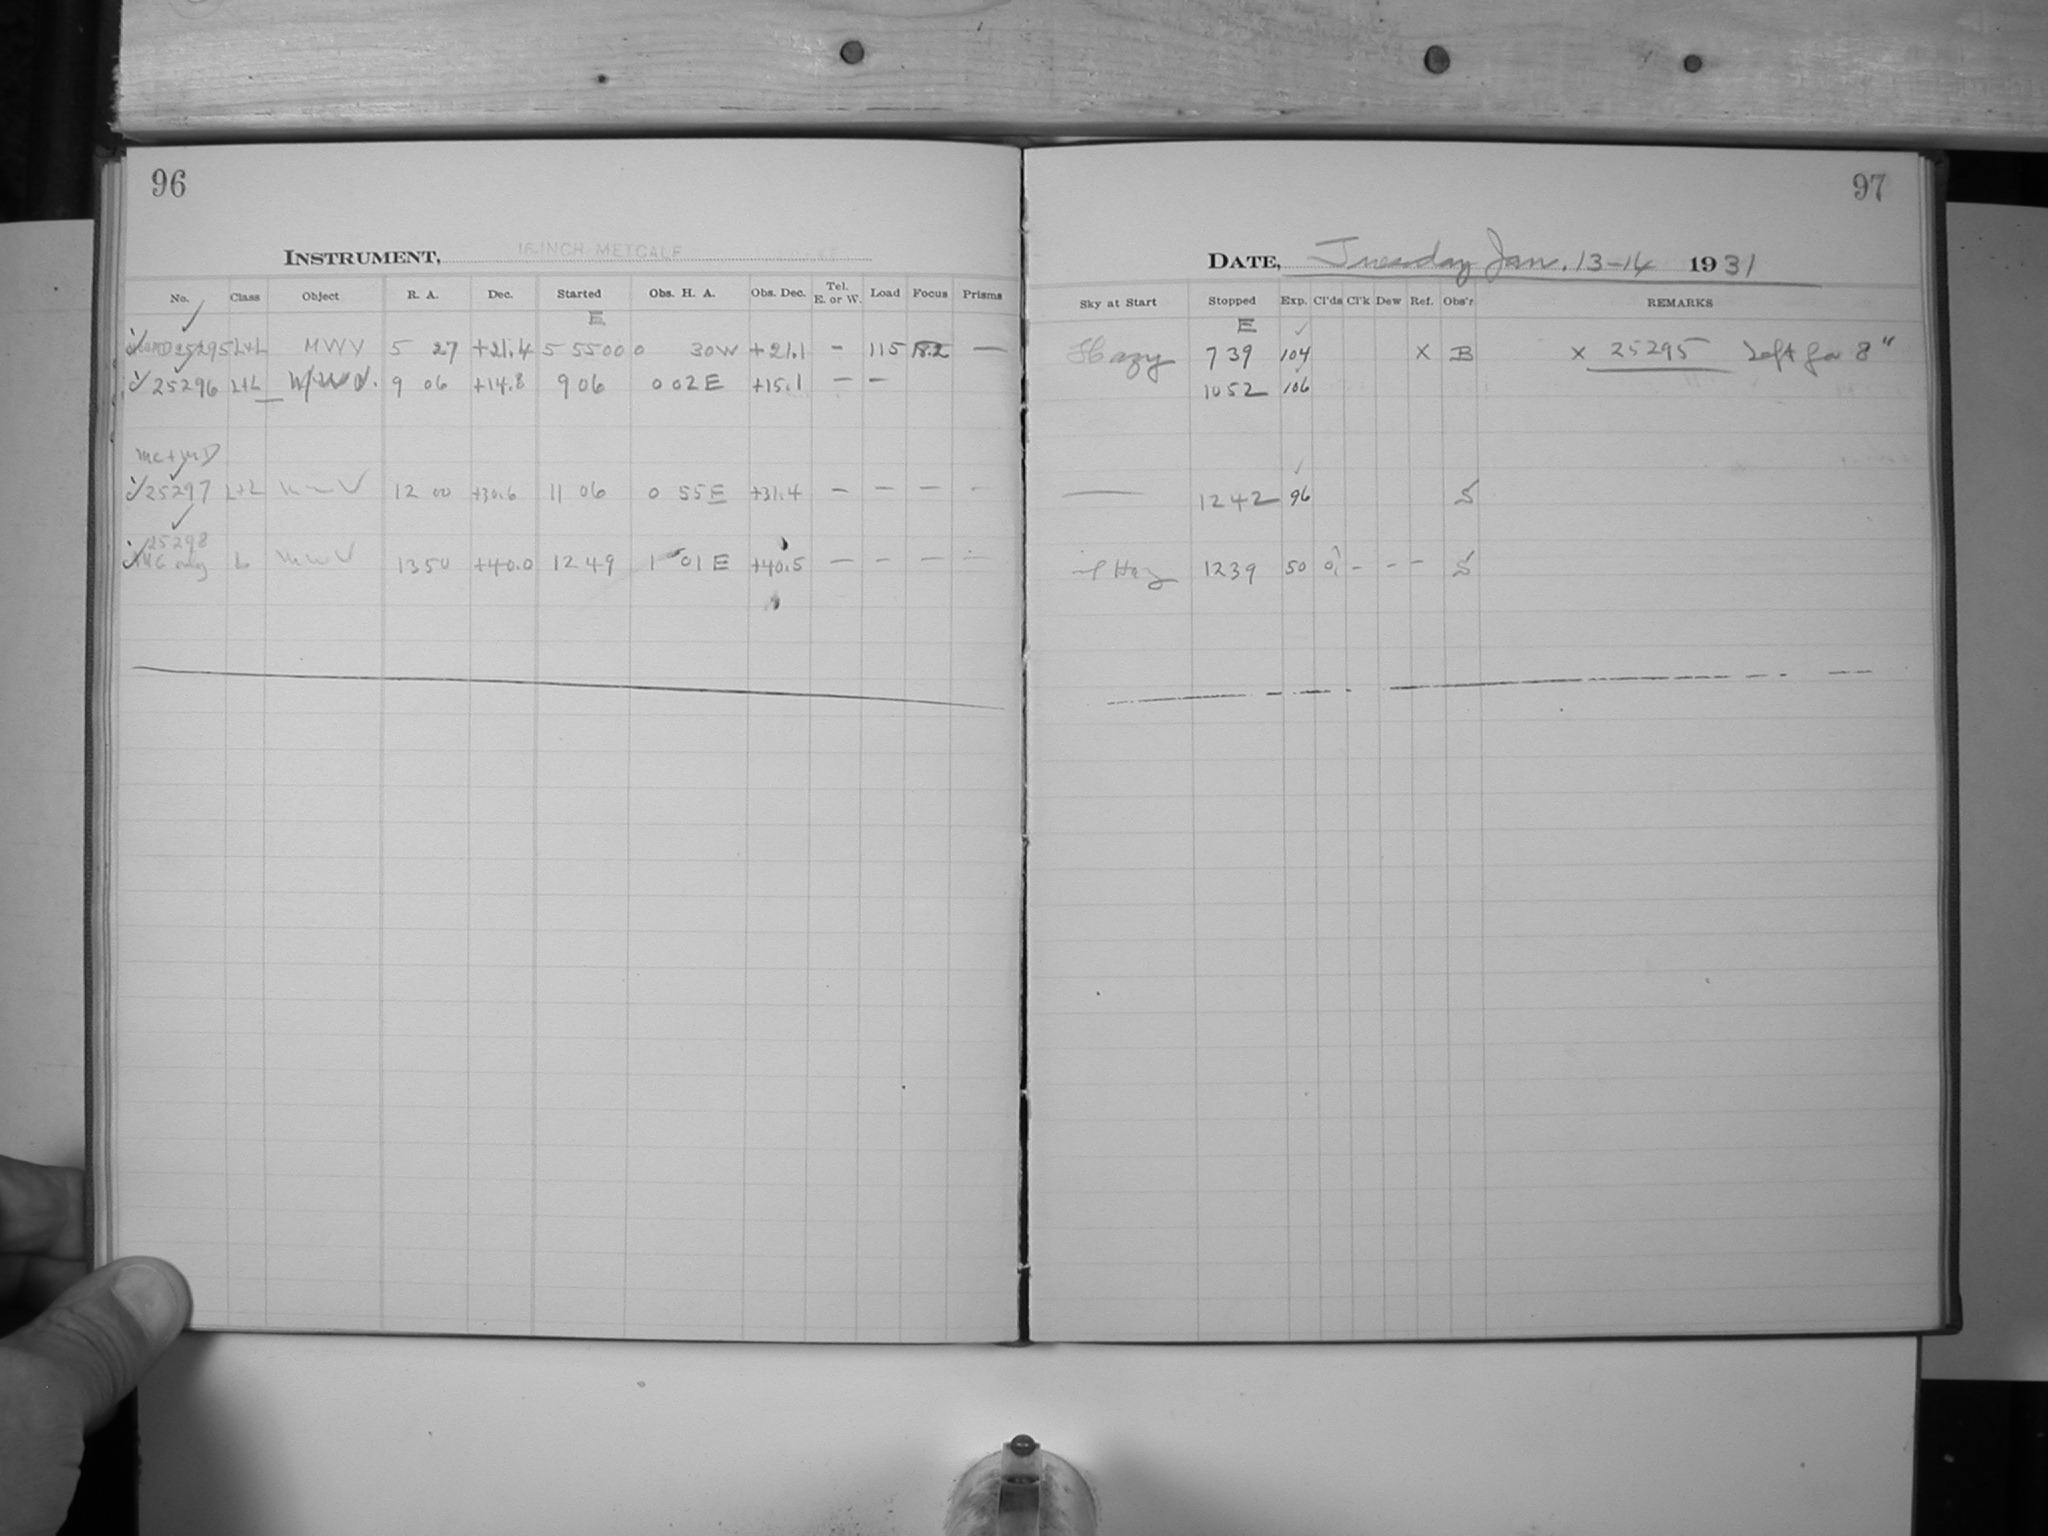 96
INSTRUMENT, 16-INCH METCALF
No. Class Object R. A. Dec. Started Obs. H. A. Obs. Dec. Tel. E. or W. Load Focus Prisms
E
25295 L+L MWV 5 27 +21.4 5 55 00 0 30W +21.1 - 115 18.2 —
25296 L+L 9 06 +14.8 9 06 0 02 E +15.1 — —
MC+MD
25297 L+L MWV 12 00 +30.6 11 06 0 55 E +31.4 — — — -
25298
MC only L MWV 13 50 +40.0 12 49 1 01 E +40.5 — — — -
97
DATE, Tuesday Jan. 13-14 1931
Sky at Start Stopped Exp. Cl'ds Cl'k Dew Ref. Obs'r REMARKS
E
Hazy 7 39 104 X B x 25295 Left for 8"
10 52 106
— 12 42 96 S
Haz 12 39 50 - - - S